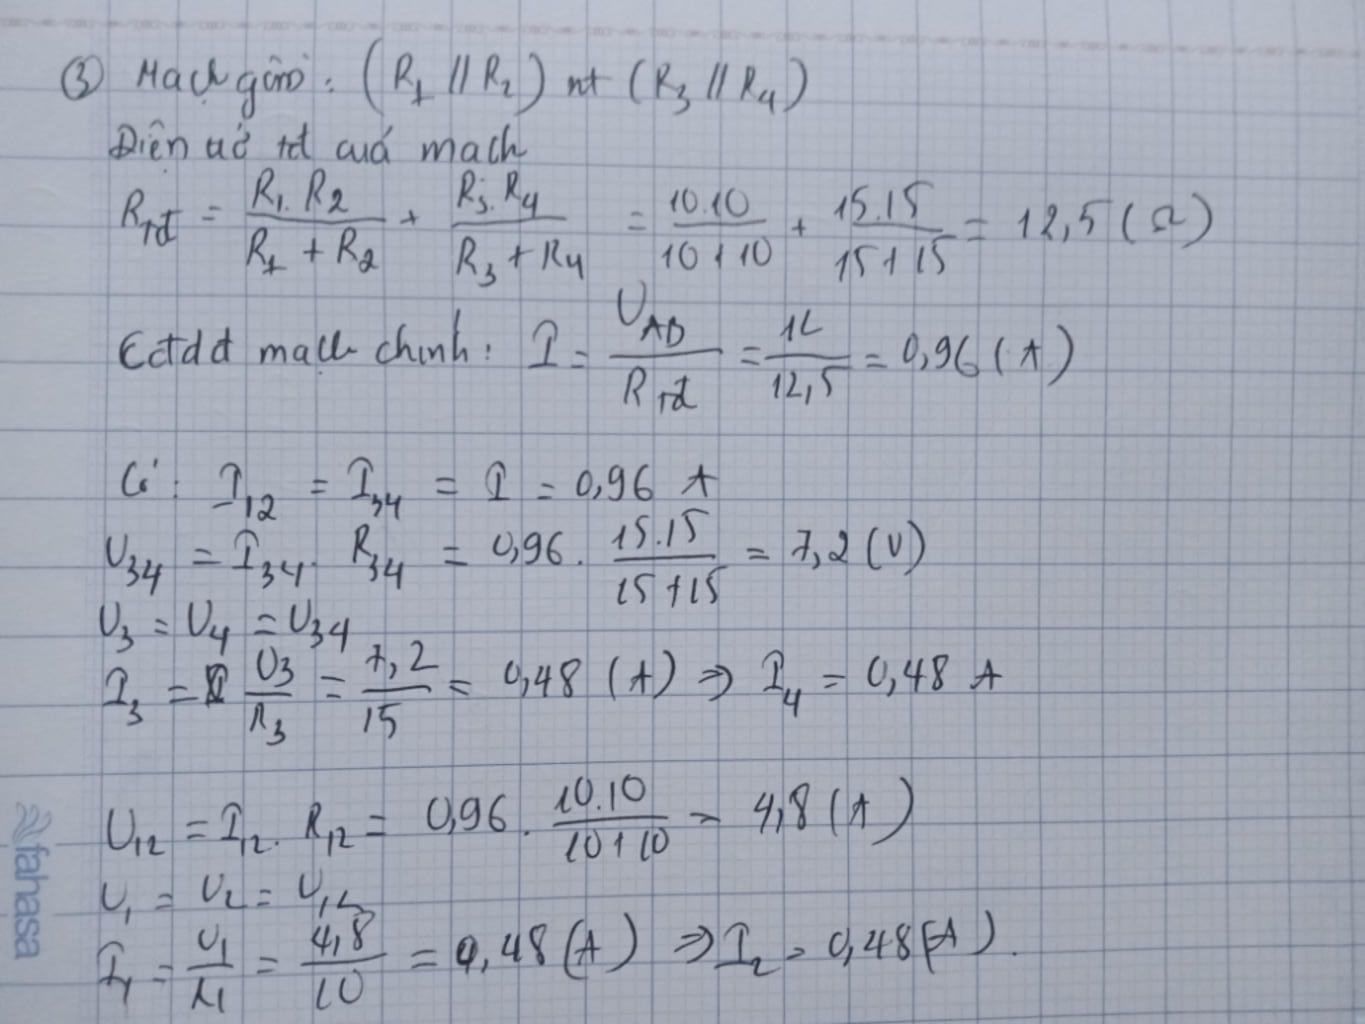 ③ Mạch gồm: (R₁ // R₂) nt (R₃ // R₄)
Điện trở tđ cuả mạch
Rtđ = R₁.R₂/(R₁ + R₂) + R₃.R₄/(R₃ + R₄) = 10.10/(10+10) + 15.15/(15+15) = 12,5 (Ω)
Cctdđ mạch chính: I = U_AB/Rtđ = 12/12,5 = 0,96 (A)
Có: I₁₂ = I₃₄ = I = 0,96 A
U₃₄ = I₃₄. R₃₄ = 0,96. 15.15/(15+15) = 7,2 (V)
U₃ = U₄ = U₃₄
I₃ = U₃/R₃ = 7,2/15 = 0,48 (A) ⇒ I₄ = 0,48 A
U₁₂ = I₁₂. R₁₂ = 0,96. 10.10/(10+10) = 4,8 (A)
U₁ = U₂ = U₁₂
I₁ = U₁/R₁ = 4,8/10 = 0,48 (A) ⇒ I₂ = 0,48 (A).
fahasa